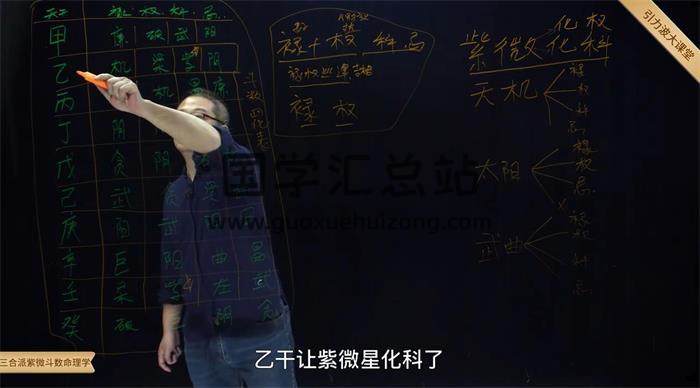 引力波大课堂
天干 禄 权 科 忌
甲 廉 破 武 阳
乙 机 梁 紫 阴
丙 机 昌 廉
丁 阴
戊 贪 阴
己 武 贪 梁
庚 阳 武
辛 巨 阳 曲 昌
壬 梁 紫 左 武
癸 破 阴 贪
十干四化表
禄+权 科 忌
禄 权
化权
紫微化科
天机
禄
权
科
忌
太阳
禄
权
忌
武曲
禄
权
科
忌
国学汇总站
www.guoxuehuizong.com
乙干让紫微星化科了
三合派紫微斗数命理学